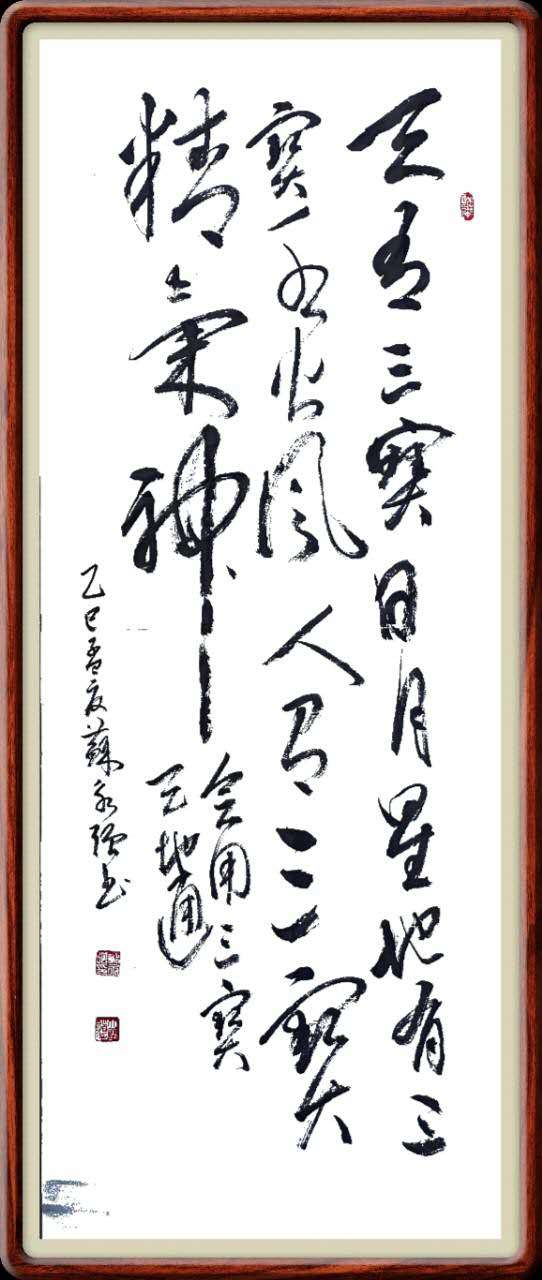 天有三寶日月星地有三
寶水火風人有三寶
精氣神
會用三寶
天地通
乙巳孟夏蘇永強書